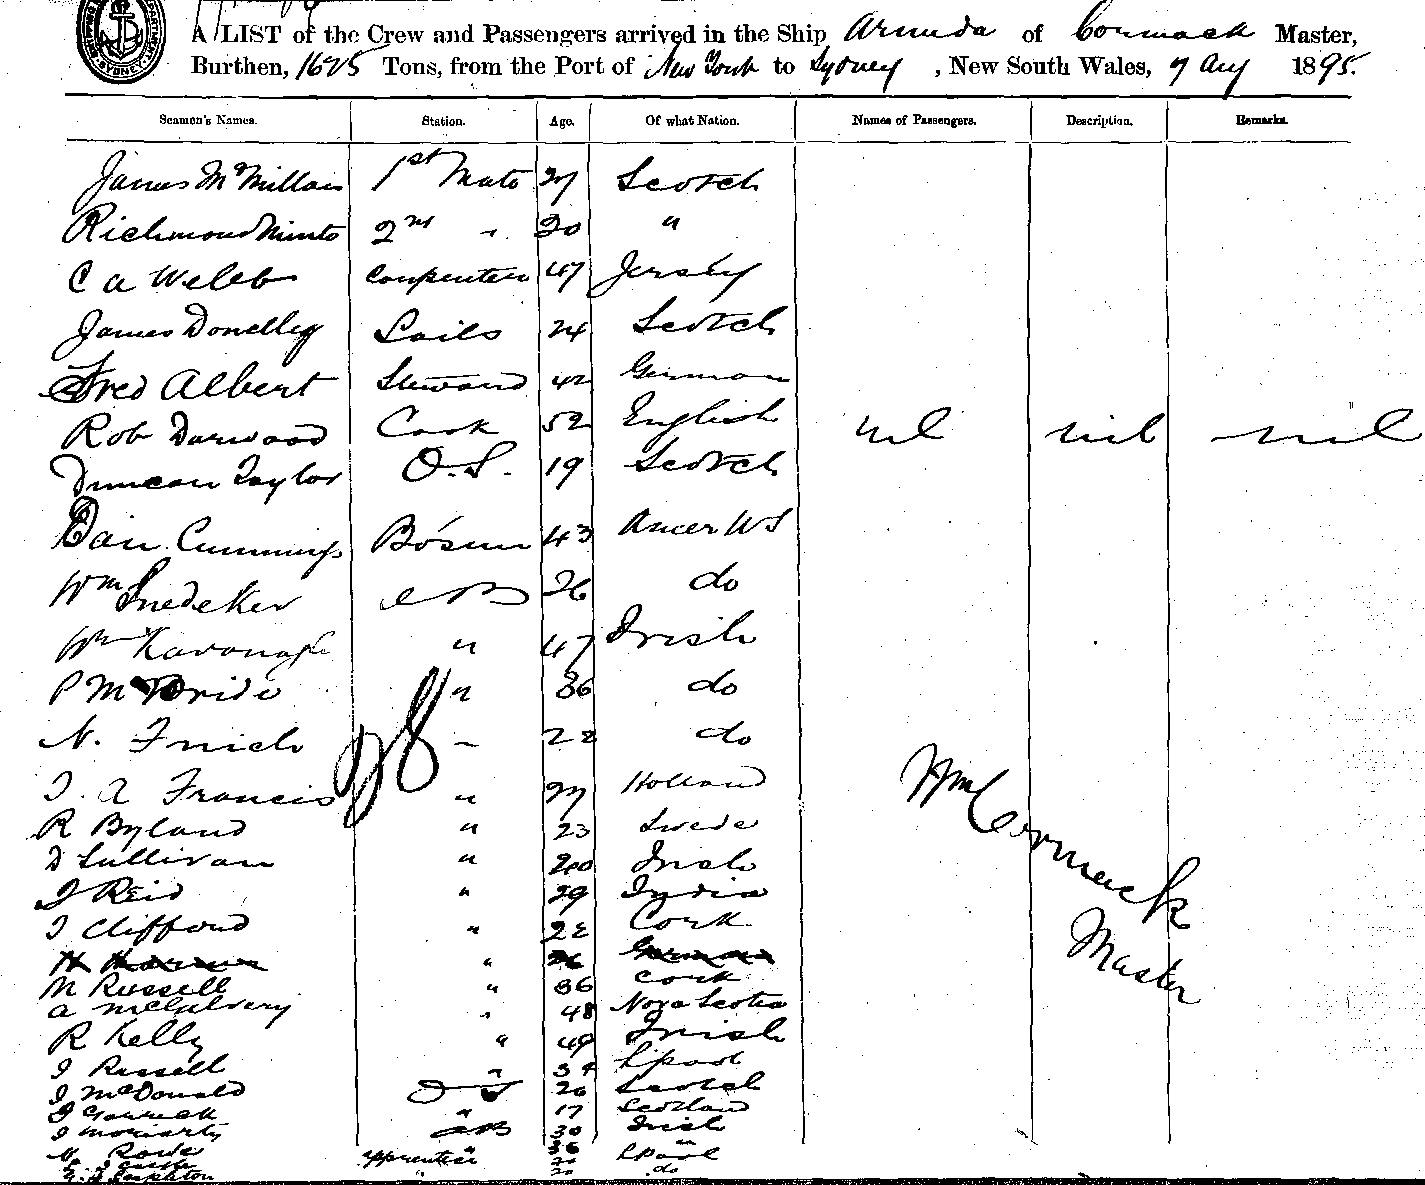 A LIST of the Crew and Passengers arrived in the Ship Armida of Cormack Master,
Burthen, 1625 Tons, from the Port of New York to Sydney, New South Wales, 7 Aug 1895.
Seamen's Names. Station. Age. Of what Nation. Names of Passengers. Description. Remarks.
James McMillan 1st Mate 27 Scotch
Richmond Minto 2nd " 20 "
C A Webb Carpenter 47 Jersey
James Donelley Sails 24 Scotch
Fred Albert Steward 42 German
Rob Darwood Cook 52 English nil nil nil
Duncan Taylor O.S. 19 Scotch
Dan Cummings Bosun 43 Amer US
Wm Snedeker AB 26 do
Wm Kavanagh " 47 Irish
P McBride " 36 do
N. " 22 do
28
J. A Francis " 27 Holland
R Byland " 23 Swede
D Sullivan " 20 Irish
J Reid " 29 India
J Clifford " 22 Cork
H " 26 German
M Russell " 36 Cork
A " 48 Nova Scotia
R Kelly " 49 Irish
J Russell " 34 Lpool
J McDonald OS 20 Scotch
J " 17 Scotland
J Moriarty AB 30 Irish
Rowe 36 "
apprentice 20 Lpool
" 20 do
Wm Cormack
Master